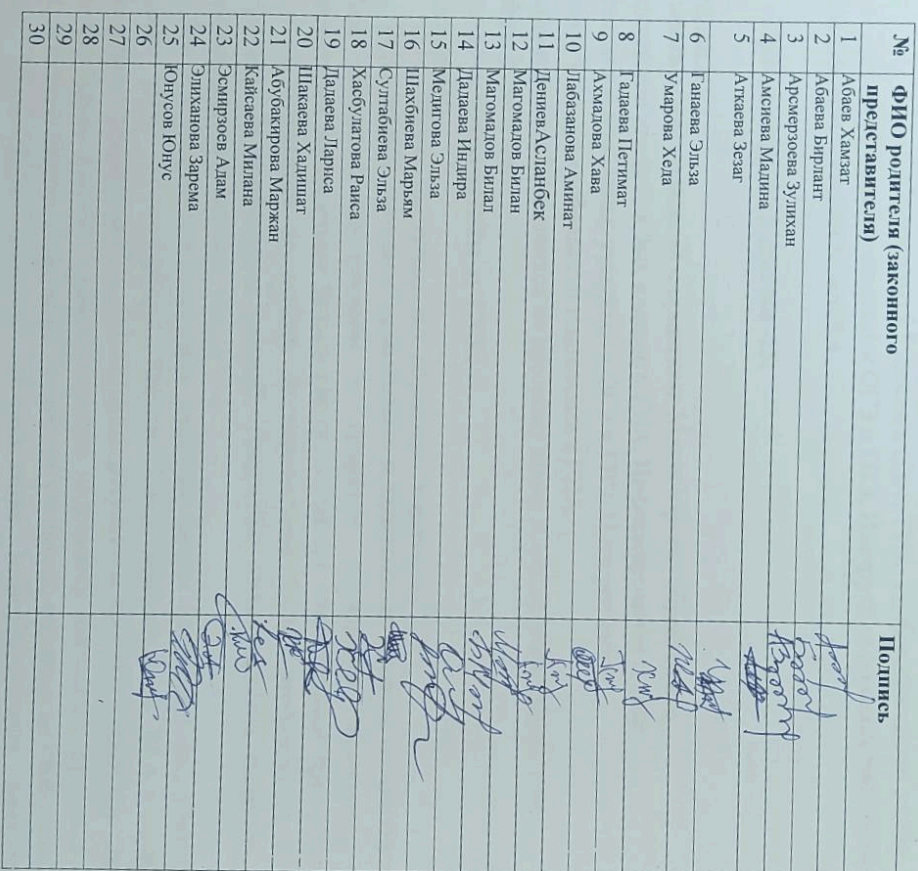 № ФИО родителя (законного представителя) Подпись
1 Абаев Хамзат
2 Абаева Бирлант
3 Арсмерзоева Зулихан
4 Амсиева Мадина
5 Аткаева Зезаг
6 Ганаева Эльза
7 Умарова Хеда
8 Гадаева Петимат
9 Ахмадова Хава
10 Лабазанова Аминат
11 Дениев Асланбек
12 Магомадов Билан
13 Магомадов Билал
14 Дадаева Индира
15 Медигова Эльза
16 Шахбиева Марьям
17 Султабиева Эльза
18 Хасбулатова Раиса
19 Дадаева Лариса
20 Шакаева Хадишат
21 Абубакирова Маржан
22 Кайсаева Милана
23 Эсмирзоев Адам
24 Элиханова Зарема
25 Юнусов Юнус
26
27
28
29
30